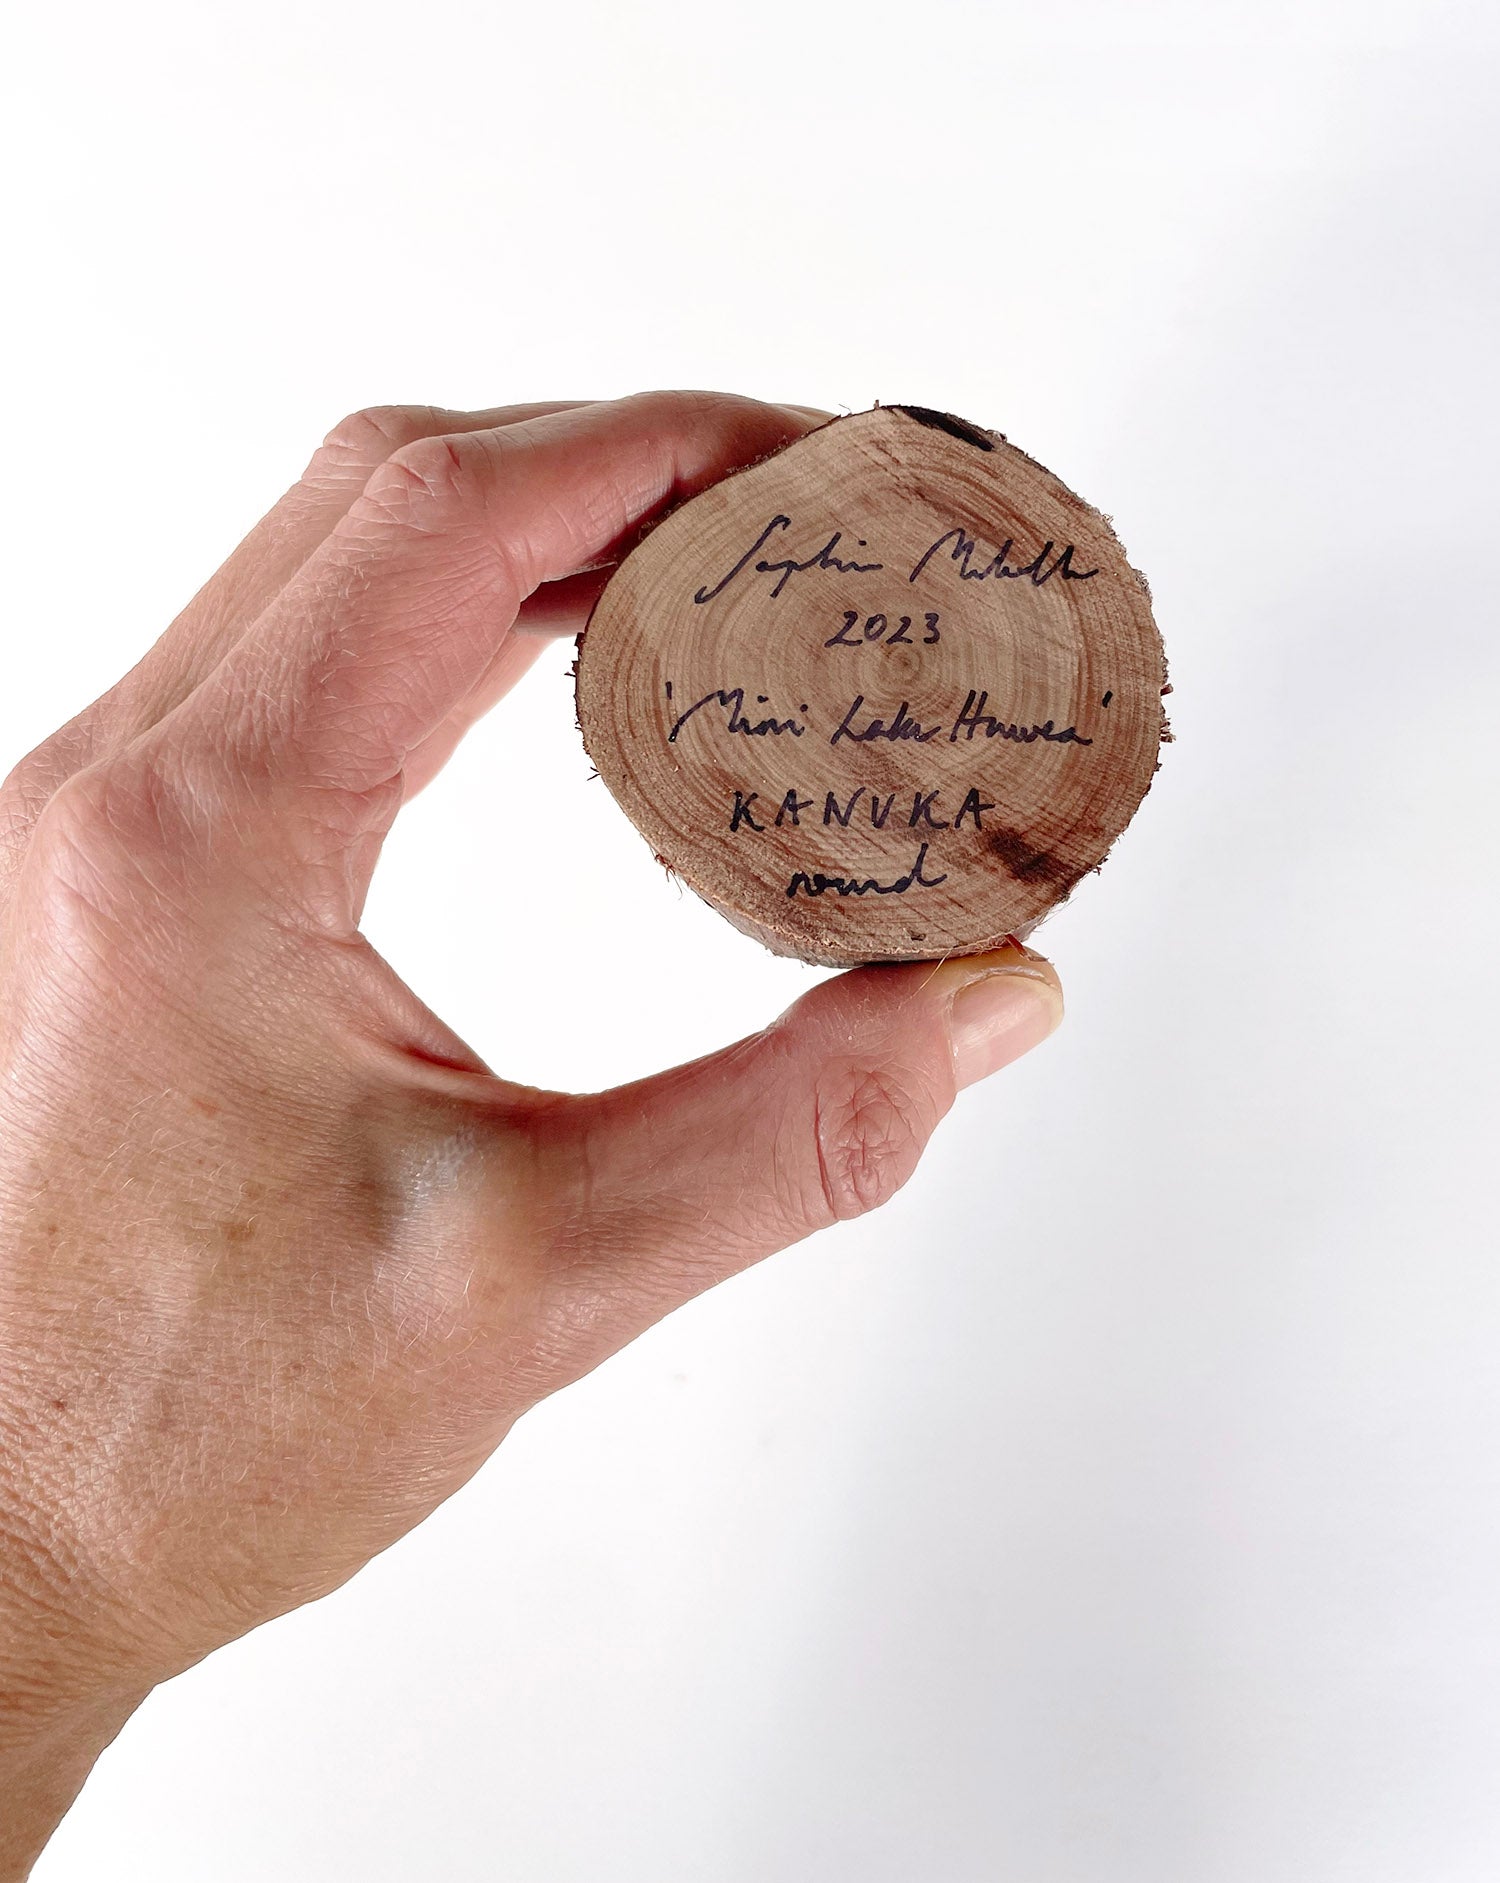 Sophie Melville
2023
'Mini Lake Hawea'
KANUKA
round